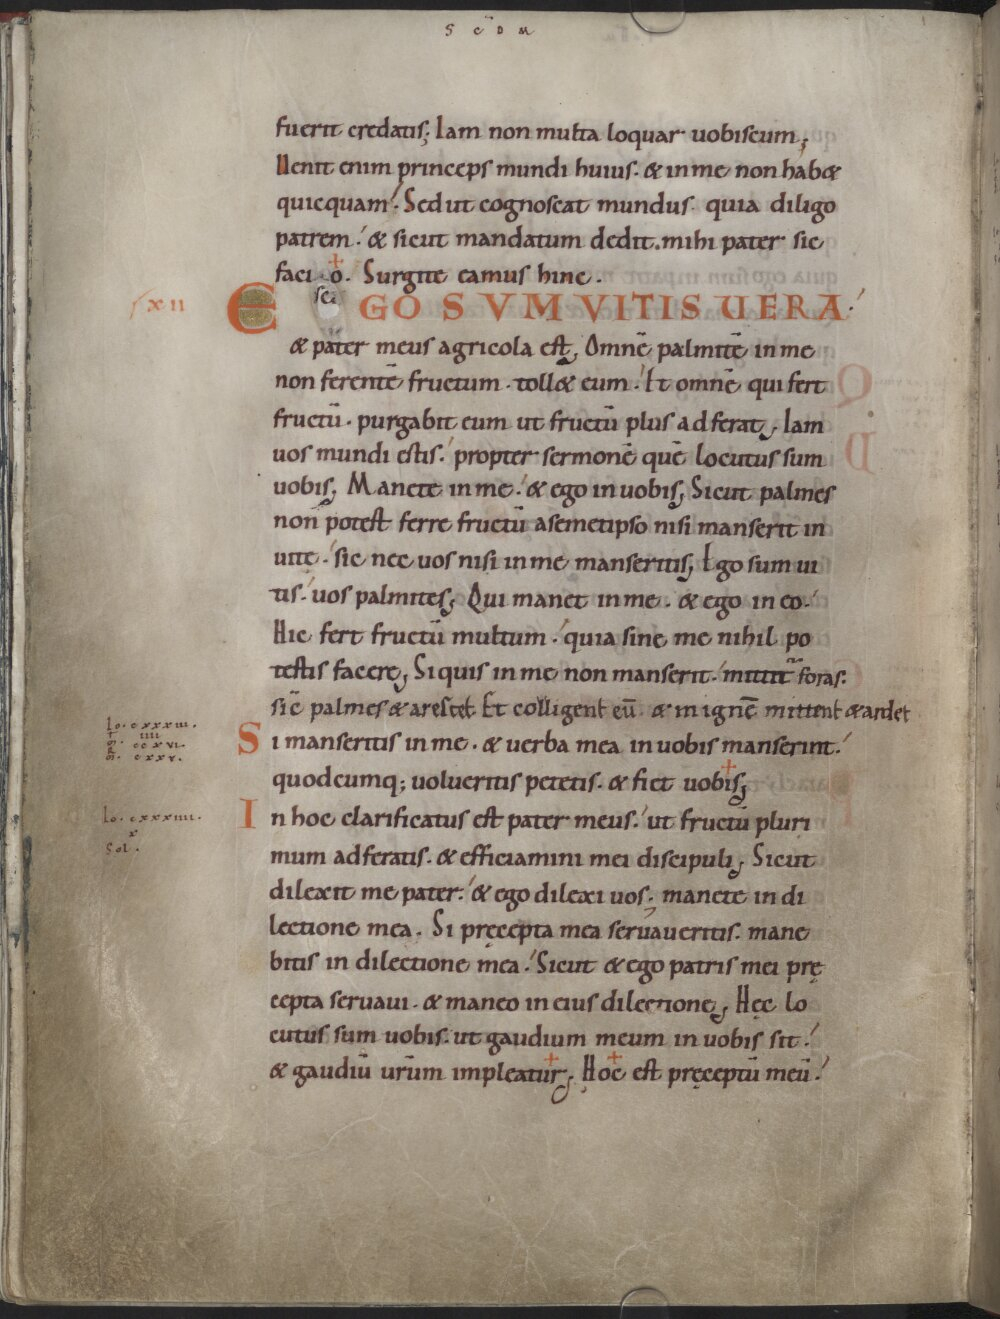 S C̄ D M
fuerit credatis; Iam non multa loquar uobiscum;
Uenit enim princeps mundi huius. & in me non hab&
quicquam. Sed ut cognoscat mundus quia diligo
patrem. & sicut mandatum dedit mihi pater sic
faci o. Surgite eamus hinc.
xii EGO SVM VITIS UERA
& pater meus agricola est; Omnē palmitē in me
non ferentē fructum. toll& eum. Et omnē qui fert
fructū. purgabit eum ut fructū plus adferat; Iam
uos mundi estis. propter sermonē quē locutus sum
uobis; Manete in me. & ego in uobis; Sicut palmes
non potest ferre fructū asemetipso nisi manserit in
uite. sic nec uos nisi in me manseritis; Ego sum ui
tis. uos palmites; Qui manet in me. & ego in eo.
Hic fert fructū multum. quia sine me nihil po
testis facere; Si quis in me non manserit. mittit foras.
sic palmes & arescet Et colligent eū & in ignē mittent & ardet
Io. cxxxiii.
iiii
ccxvi.
cxxv.
Si manseritis in me. & uerba mea in uobis manserint.
quodcumq; uolueritis petetis. & fiet uobis;
Io. cxxxiiii.
x
Sol.
In hoc clarificatus est pater meus. ut fructū pluri
mum adferatis. & efficiamini mei discipuli; Sicut
dilexit me pater. & ego dilexi uos. manete in di
lectione mea. Si pręcepta mea seruaueritis. mane
bitis in dilectione mea. Sicut & ego patris mei prę
cepta seruaui. & maneo in eius dilectione; Hęc lo
cutus sum uobis. ut gaudium meum in uobis sit.
& gaudiū urūm impleatur; Hoc est pręceptū meū.